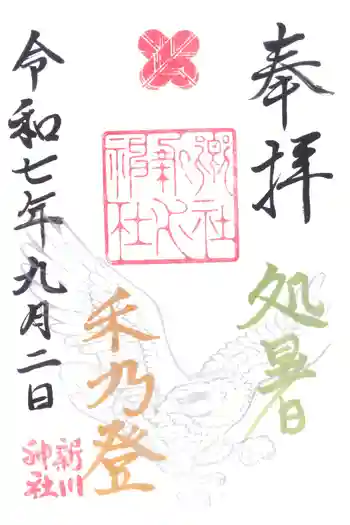 奉拝
処暑
禾乃登
令和七年九月二日
新川
神社